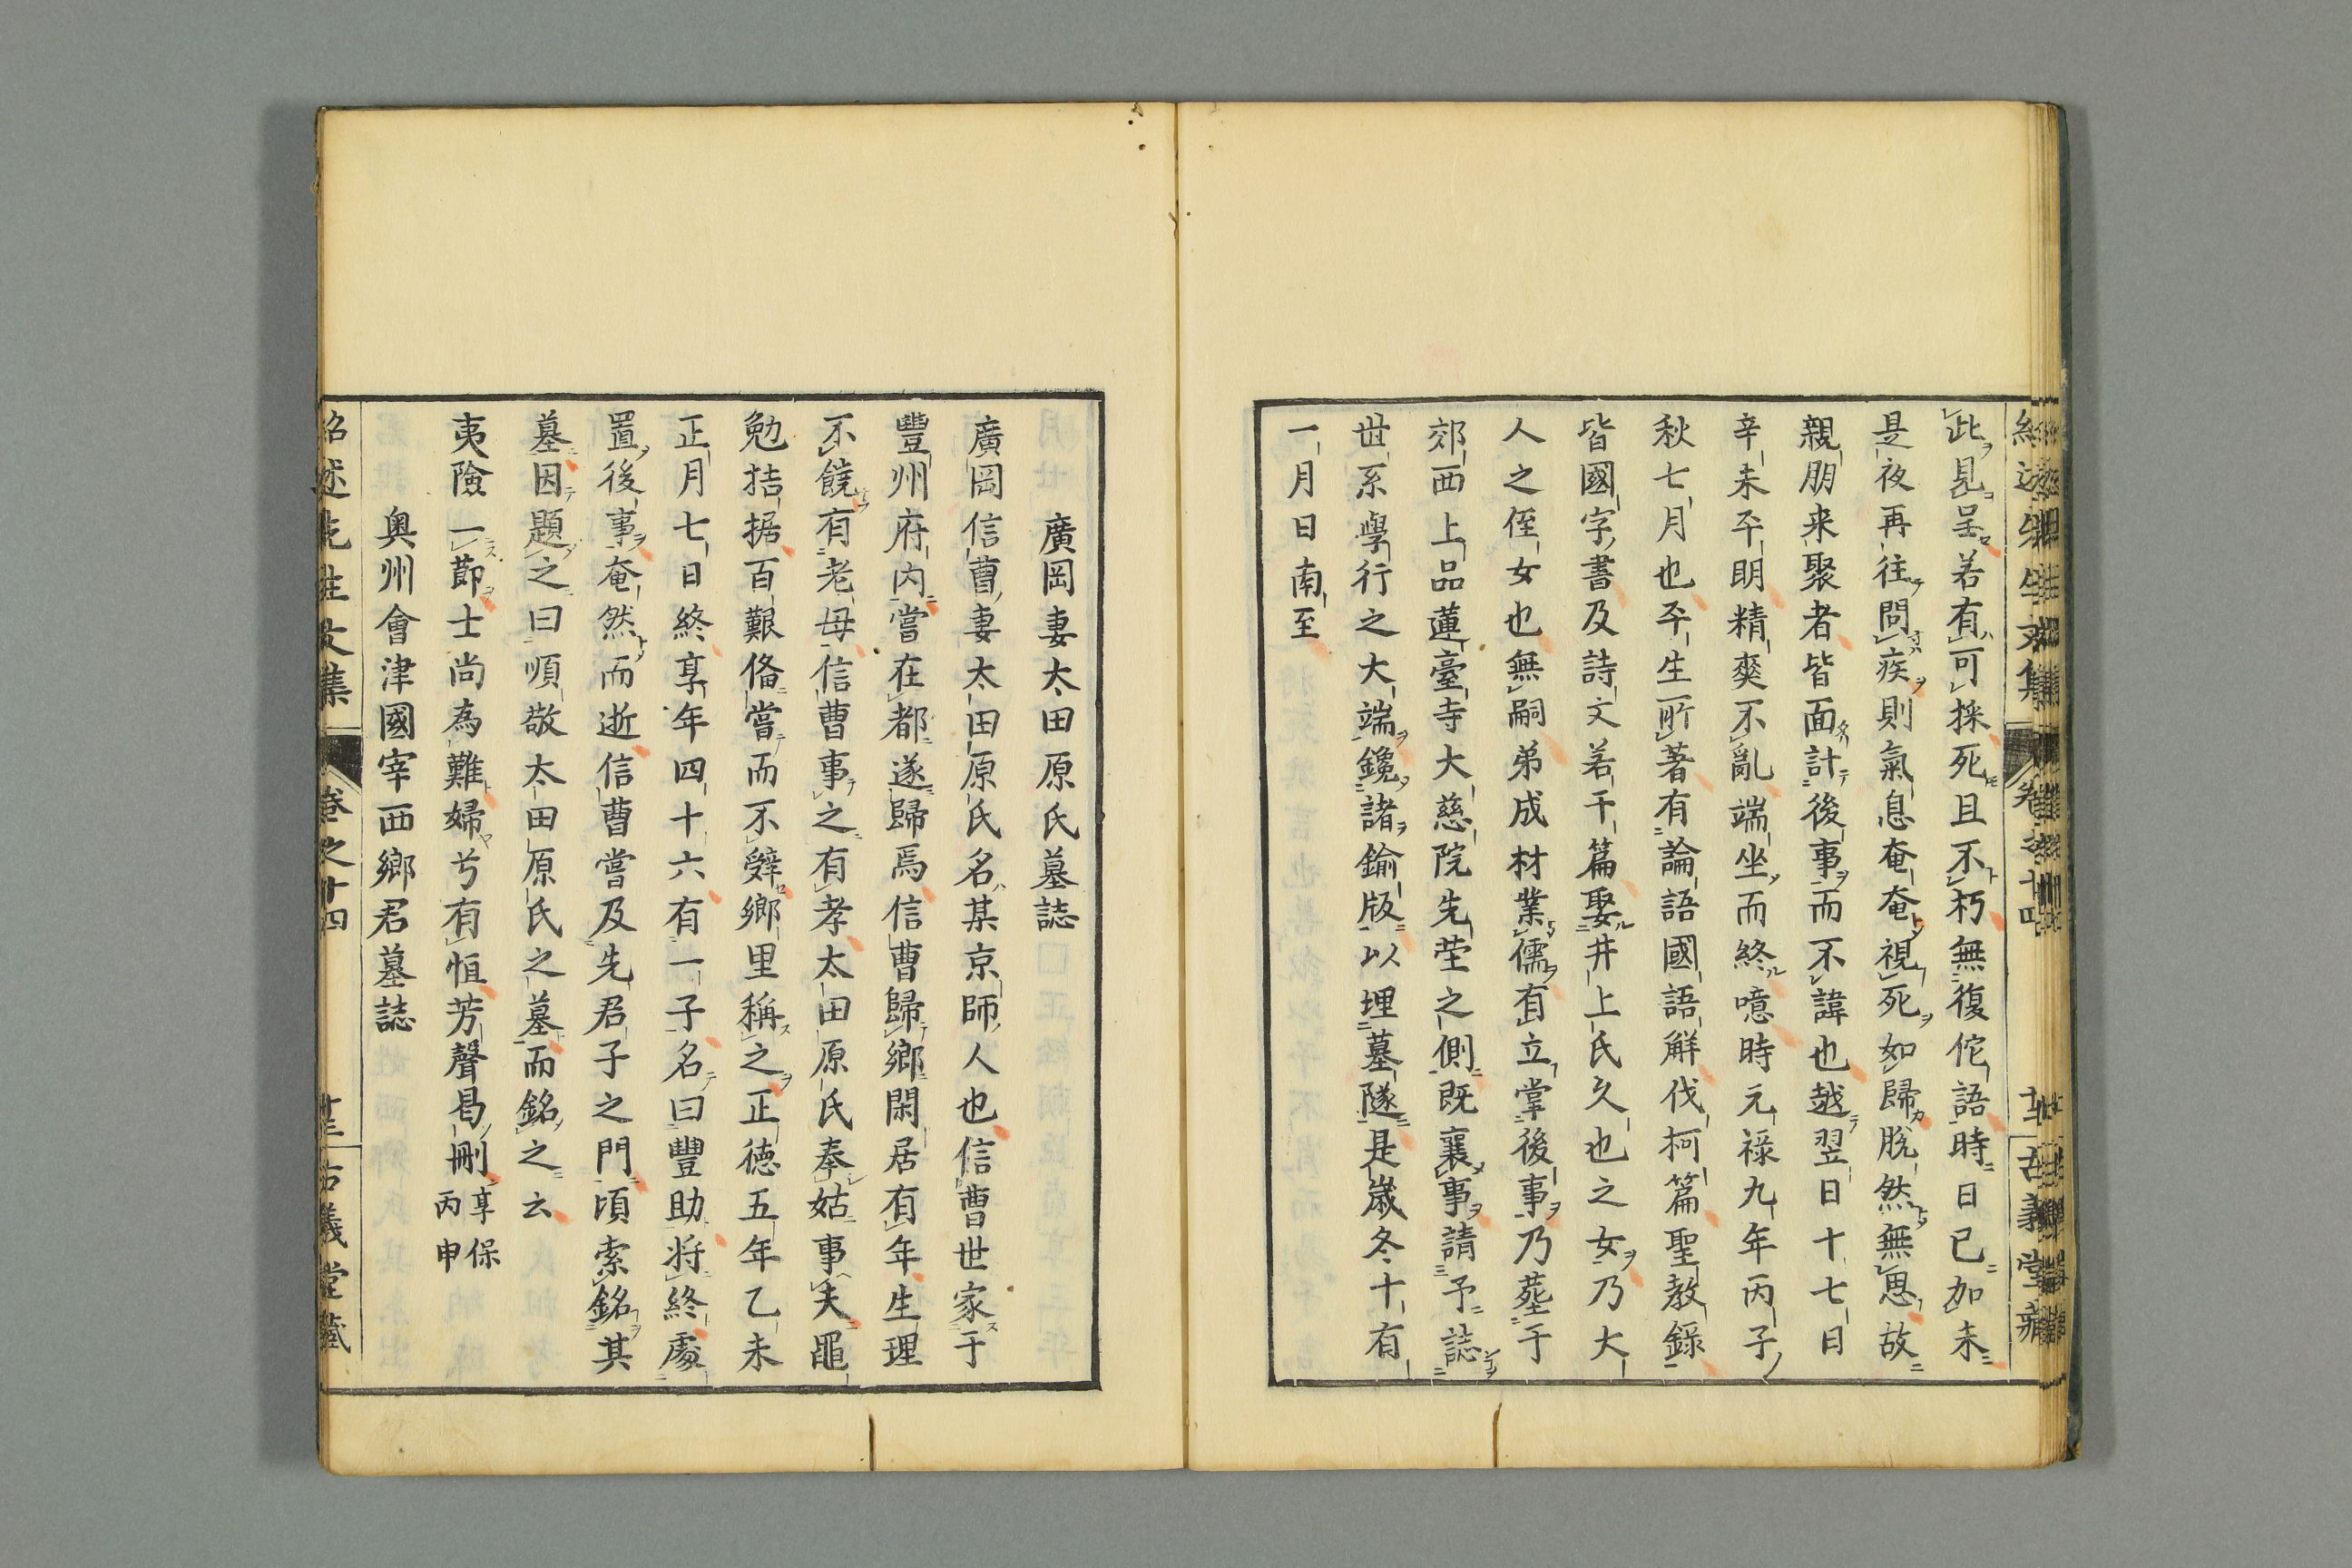 此見呈若有可採死且不朽無復佗語時日已加未
是夜再往問疾則氣息奄奄視死如歸脫然無恩故
親朋来聚者皆面計後事而不諱也越翌日十七日
辛未平明精爽不亂端坐而終噫時元祿九年丙子
秋七月也平生所著有論語國語解伐柯篇聖教錄
皆國字書及詩文若干篇娶井上氏久也之女乃大
人之侄女也無嗣弟成材業儒有立掌後事乃葬于
郊西上品蓮臺寺大慈院先塋之側既襄事請予誌
世系學行之大端鑱諸鍮版以埋墓隧是歲冬十有
一月日南至
廣岡妻太田原氏墓誌
廣岡信曹妻太田原氏名某京師人也信曹世家于
豐州府内嘗在都遂歸焉信曹歸鄉閑居有年生理
不饒有老母信曹事之有孝太田原氏奉姑事夫黽
勉拮据百艱俻嘗而不辭鄉里稱之正德五年乙未
正月七日終享年四十六有一子名曰豐助将終處
置後事奄然而逝信曹嘗及先君子之門頃索銘其
墓因題之曰順敬太田原氏之墓而銘之云
夷險一節士尚為難婦兮有恒芳聲曷刪享保丙申
奧州會津國宰西鄉君墓誌
紹述先生文集 卷之十四 十三 古義堂藏